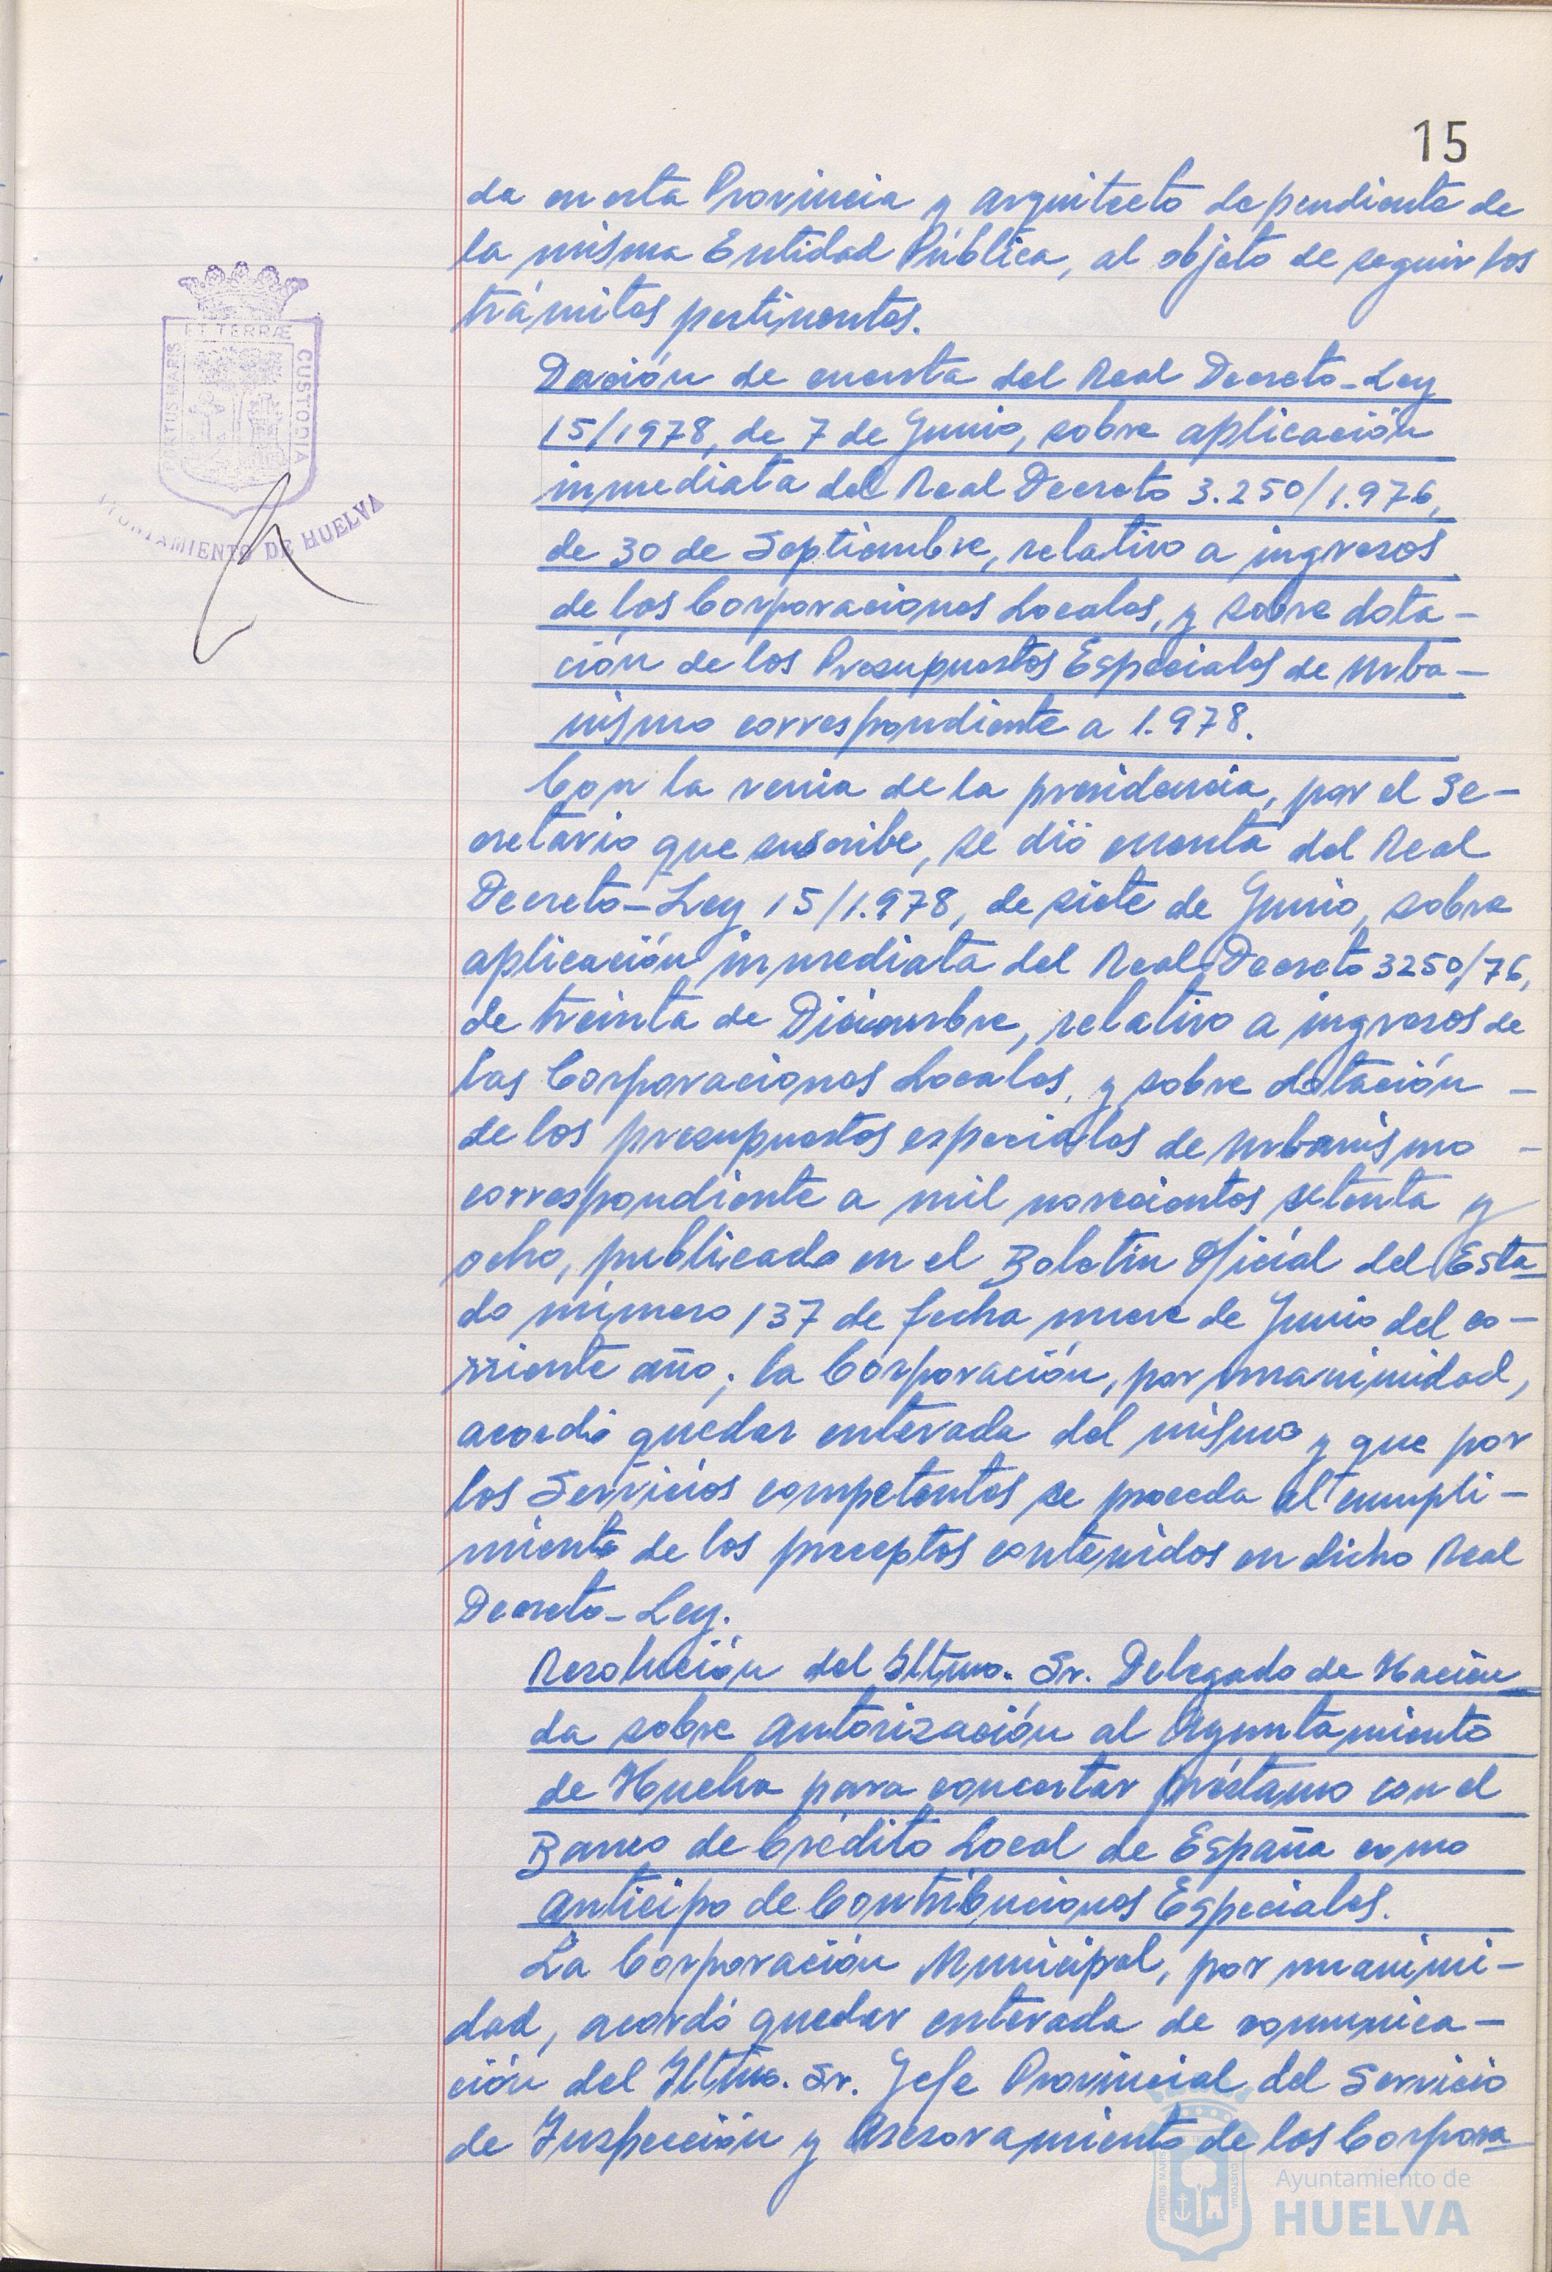 15
da en esta Provincia y arquitecto dependiente de
la misma Entidad Pública, al objeto de seguir los
trámites pertinentes.
Dación de cuenta del Real Decreto-Ley
15/1978, de 7 de Junio, sobre aplicación
inmediata del Real Decreto 3.250/1.976,
de 30 de Septiembre, relativo a ingresos
de las Corporaciones Locales, y sobre dota-
ción de los Presupuestos Especiales de Urba-
nismo correspondiente a 1.978.
Con la venia de la presidencia, por el Se-
cretario que suscribe, se dió cuenta del Real
Decreto-Ley 15/1.978, de siete de Junio, sobre
aplicación inmediata del Real Decreto 3250/76,
de treinta de Diciembre, relativo a ingresos de
las Corporaciones Locales, y sobre dotación -
de los presupuestos especiales de Urbanismo -
correspondiente a mil novecientos setenta y
ocho, publicado en el Boletín Oficial del Esta-
do número 137 de fecha nueve de Junio del co-
rriente año; la Corporación, por unanimidad,
acordó quedar enterada del mismo y que por
los Servicios competentes se proceda al cumpli-
miento de los preceptos contenidos en dicho Real
Decreto-Ley.
Resolución del Iltmo. Sr. Delegado de Hacien
da sobre autorización al Ayuntamiento
de Huelva para concertar préstamo con el
Banco de Crédito Local de España como
anticipo de Contribuciones Especiales.
La Corporación Municipal, por unanimi-
dad, acordó quedar enterada de comunica-
ción del Iltmo. Sr. Jefe Provincial del Servicio
de Inspección y Asesoramiento de las Corpora
ET TERRÆ
PORTUS MARIS
CUSTODIA
AYUNTAMIENTO DE HUELVA
PORTUS MARIS
CUSTODIA
Ayuntamiento de
HUELVA